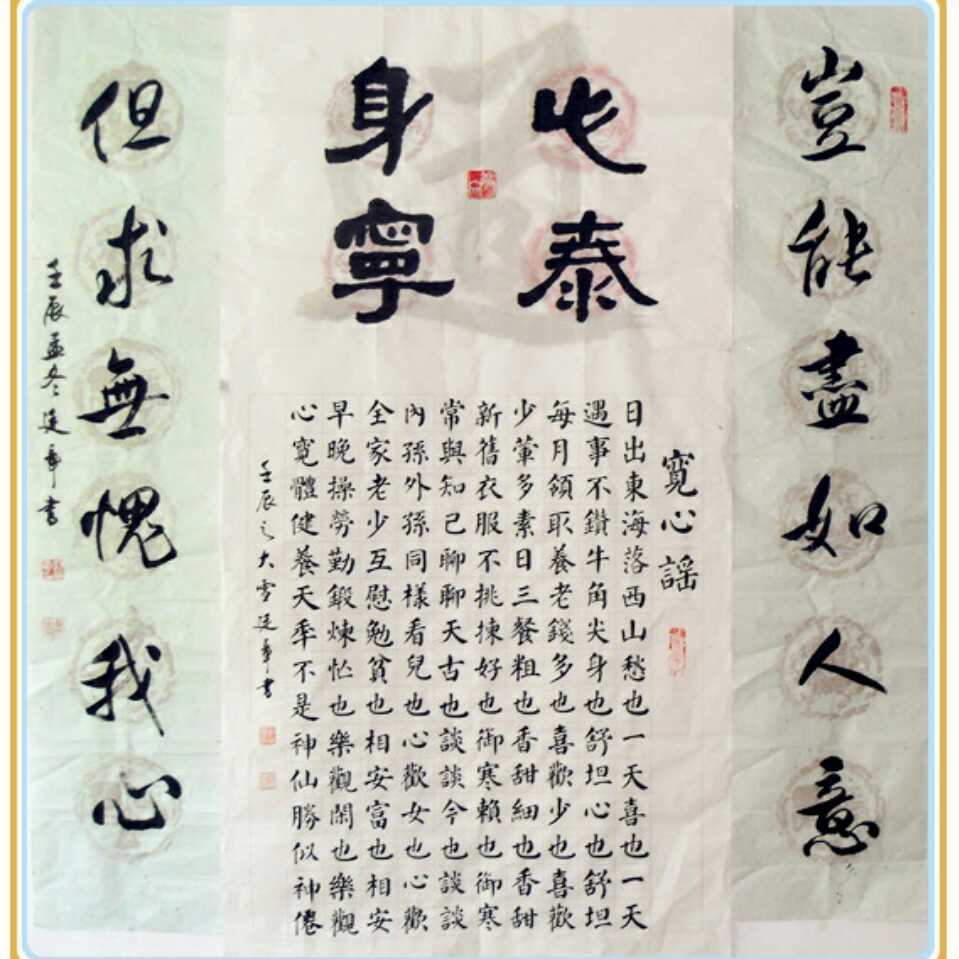 豈能盡如人意
心泰
身寧
寬心謠
日出東海落西山愁也一天喜也一天
遇事不鑽牛角尖身也舒坦心也舒坦
每月領取養老錢多也喜歡少也喜歡
少葷多素日三餐粗也香甜細也香甜
新舊衣服不挑揀好也御寒賴也御寒
常與知己聊聊天古也談談今也談談
內孫外孫同樣看兒也心歡女也心歡
全家老少互慰勉貧也相安富也相安
早晚操勞勤鍛煉忙也樂觀閑也樂觀
心寬體健養天秊不是神仙勝似神僊
壬辰之大雪廷章書
但求無愧我心
壬辰孟冬廷章書